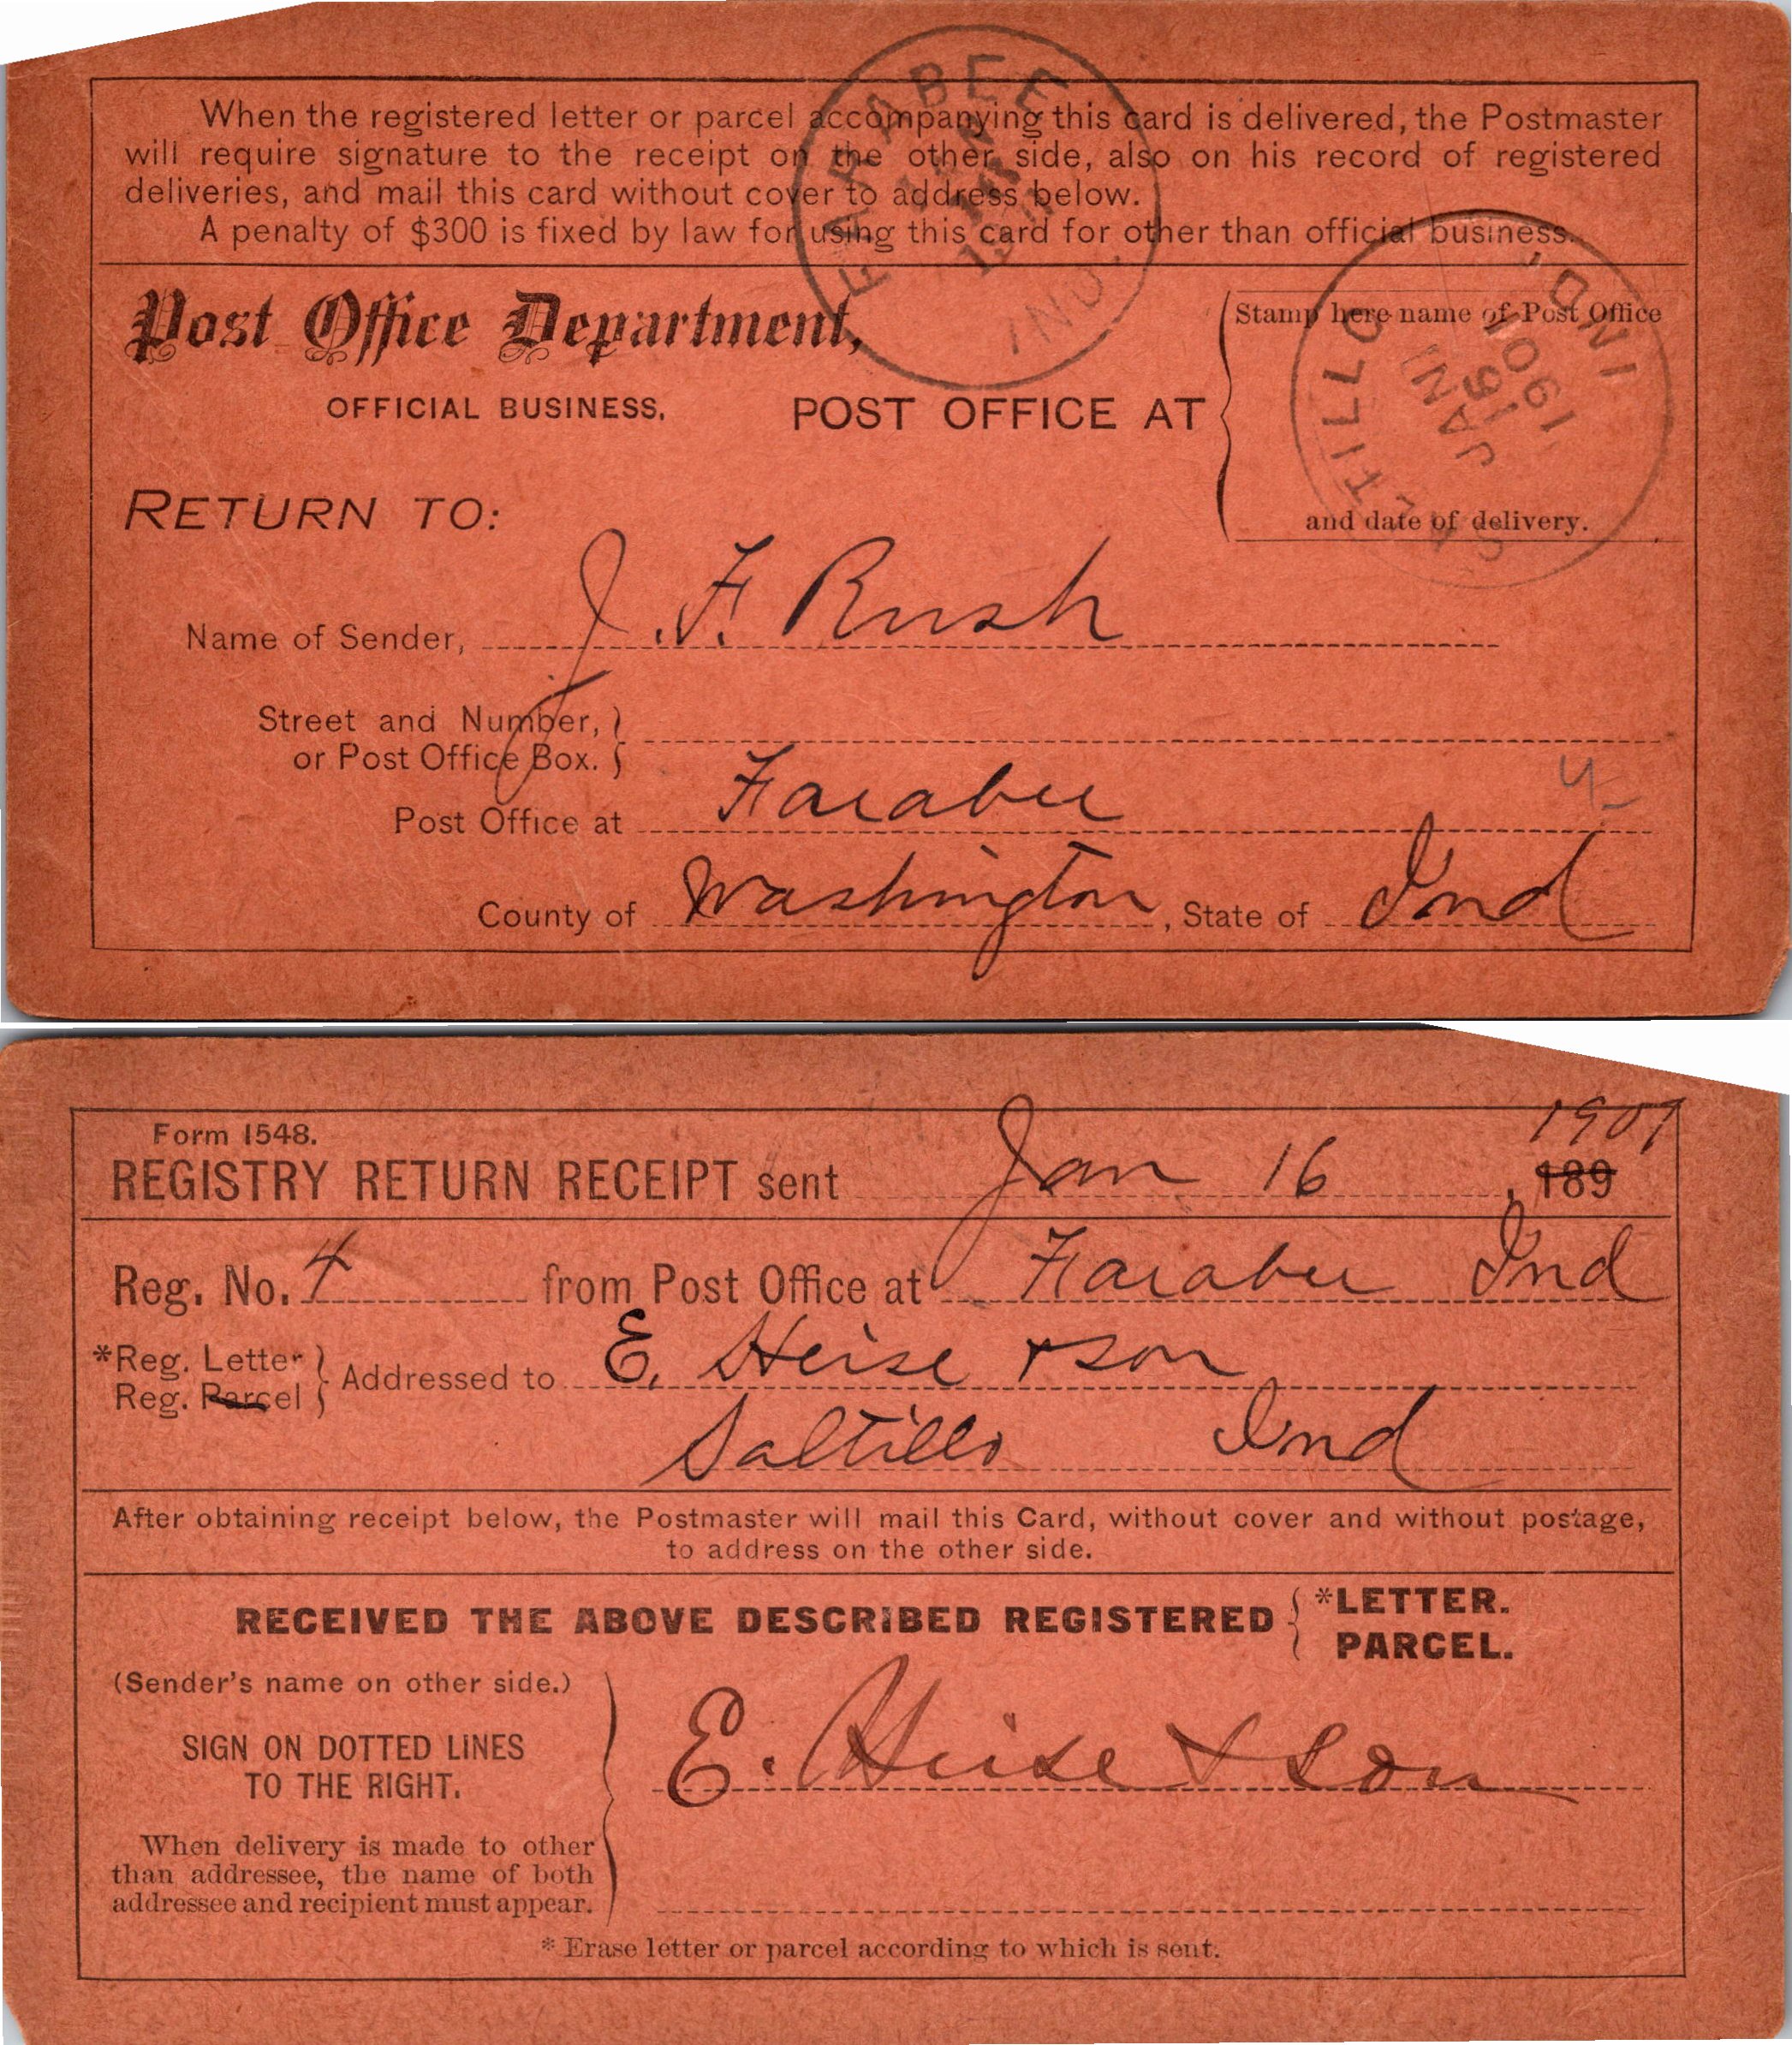 When the registered letter or parcel accompanying this card is delivered, the Postmaster
will require signature to the receipt on the other side, also on his record of registered
deliveries, and mail this card without cover to address below.
A penalty of $300 is fixed by law for using this card for other than official business.
FARABEE
IND.
Post Office Department,
OFFICIAL BUSINESS.
POST OFFICE AT
Stamp here name of Post Office
and date of delivery.
SALTILLO IND.
JAN
1901
RETURN TO:
Name of Sender, J. F. Rush
Street and Number,
or Post Office Box.
Post Office at Farabee
4
County of Washington, State of Ind
Form 1548.
1901
REGISTRY RETURN RECEIPT sent Jan 16, 189
Reg. No. 4 from Post Office at Farabee Ind
*Reg. Letter
Reg. Parcel
Addressed to E. Heise & Son
Saltillo Ind
After obtaining receipt below, the Postmaster will mail this Card, without cover and without postage,
to address on the other side.
RECEIVED THE ABOVE DESCRIBED REGISTERED
*LETTER.
PARCEL.
(Sender's name on other side.)
SIGN ON DOTTED LINES
TO THE RIGHT.
E. Heise & Son
When delivery is made to other
than addressee, the name of both
addressee and recipient must appear.
* Erase letter or parcel according to which is sent.